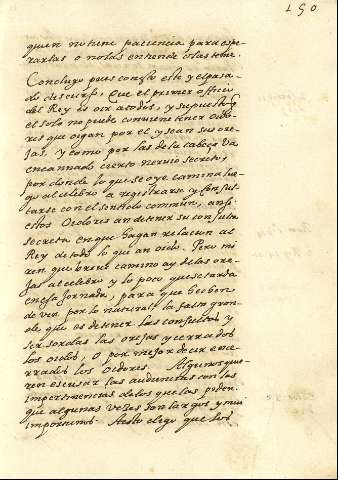 150
quien no tiene paciencia para espe
rarlas o no las entiende o las teme.
Concluyo pues con este y el pasa
do discurso, Que el primer officio
del Rey es oir a todos, y supuesto q
el solo no puede conviene tener oido
res que oigan por el y sean sus ore
jas. y como por las de la cabeça va
encannado cierto nervio secreto,
por donde lo que se oye camina lue
go al celebro a registrarse y consul
tarse con el sentido comun, ansi
estos Oidores an de tener su consulta
secreta en que hagan relacion al
Rey de todo lo que an oido. Pero mi
ren que breve camino ay de las ore
jas al celebro y lo poco que se tarda
en esa jornada, para que se eche
de ver por lo natural, la falta gran
de que es detener las consultas y
ser sordas las orejas y cerrados
los oidos, o por mejor decir ence
rrados los Oidores. Algunos quie
ren escusar las audiencias con las
impertinencias de los que las piden
que algunas vezes son largos y mui
importunos. A esto digo que los